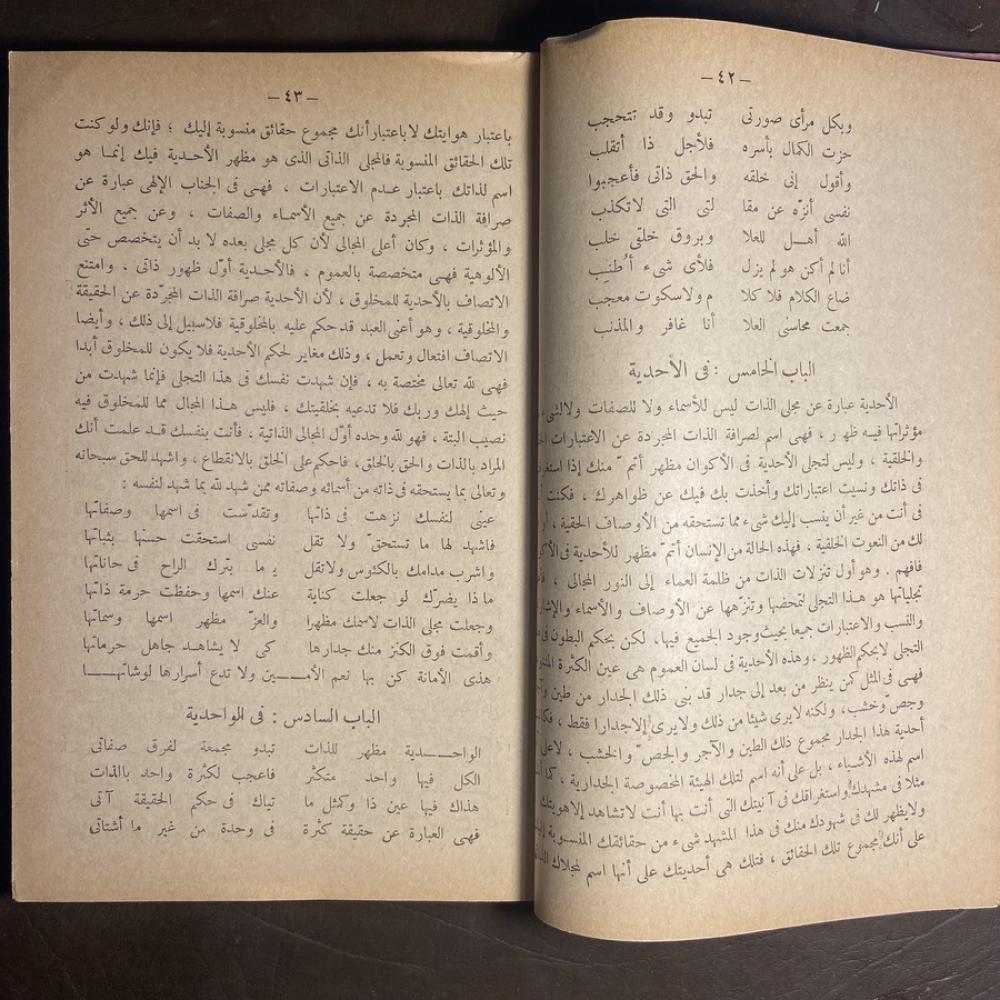 — ٤٢ —
وبكل مرأى صورتى تبدو وقد تتحجب
حزت الكمال بأسره فلأجل ذا أتقلب
وأقول إنى خلقه والحق ذاتى فأعجبوا
نفسى أنزّه عن مقا لتى التى لاتكذب
الله أهـــل للعلا وبروق خلقى خلب
أنا لم أكن هو لم يزل فلأى شىء أُطنِب
ضاع الكلام فلا كلا م ولاسكوت معجب
جمعت محاسنى العلا أنا غافر والمذنب
الباب الخامس : فى الأحدية
الأحدية عبارة عن مجلى الذات ليس للأسماء ولا للصفات ولالشىء
مؤثراتها فيـه ظهور ، فهى اسم لصرافة الذات المجردة عن الاعتبارات
والخلقية ، وليس لتجلى الأحدية فى الأكوان مظهر أتمّ منك إذا استغرقت
فى ذاتك ونسيت اعتباراتك وأخذت بك فيك عن ظواهرك ، فكنت
فى أنت من غير أن ينسب إليك شىء مما تستحقه من الأوصاف الحقية ، أو
لك من النعوت الخلقية ، فهذه الحالة من الإنسان أتمّ مظهر للأحدية فى
فافهم . وهو أول تنزلات الذات من ظلمة العماء إلى النور المجالى ،
تجلياتها هو هـذا التجلى لتمحضها وتنزّهها عن الأوصاف والأسماء
والنسب والاعتبارات جميعا بحيث وجود الجميع فيها، لكن بحكم البطون فى
التجلى لابحكم الظهور ، وهذه الأحدية فى لسان العموم هى عين الكثرة
فهى فى المثل كمن ينظر من بعد إلى جدار قد بنى ذلك الجدار من طين
وجصّ وخشب، ولكنه لايرى شيئا من ذلك ولايرى إلاجدارا فقط ،
أحدية هذا الجدار مجموع ذلك الطين والآجر والجصّ والخشب ، لاعلى
اسم لهذه الأشياء ، بل على أنه اسم لتلك الهيئة المخصوصة الجدارية ،
مثلا فى مشهدك واستغراقك فى آنيتك التى أنت بها أنت لاتشاهد إلاهويتك
ولايظهر لك فى شهودك منك فى هذا المشهد شىء من حقائقك المنسوبة
على أنك مجموع تلك الحقائق ، فتلك هى أحديتك على أنها اسم لمجلاك
— ٤٣ —
باعتبار هوايتك لاباعتبارأنك مجموع حقائق منسوبة إليك ؛ فإنك ولو كنت
تلك الحقائق المنسوبة فالمجلى الذاتى الذى هو مظهر الأحـدية فيك إنمـا هو
اسم لذاتك باعتبار عـدم الاعتبارات ، فهـى فى الجناب الإلهى عبارة عن
صرافة الذات المجردة عن جميع الأسمـاء والصفات ، وعن جميع الأثر
والمؤثرات ، وكان أعلى المجالى لأن كل مجلى بعده لا بد أن يتخصص حتّى
الألوهية فهـى متخصصة بالعموم ، فالأحـدية أوّل ظهور ذاتى ، وامتنع
الاتصاف بالأحدية للمخلوق ، لأن الأحدية صرافة الذات المجرّدة عن الحقيقة
والمخلوقية ، وهو أعنى العبد قد حكم عليه بالمخلوقية فلاسبيل إلى ذلك ، وأيضا
الاتصاف افتعال وتعمل ، وذلك مغاير لحكم الأحدية فلا يكون للمخلوق أبدا
فهـى لله تعالى مختصة به ، فإن شهدت نفسك فى هذا التجلى فإنما شهدت من
حيث إلهك وربك فلا تدعيه بخلقيتك ، فليس هـذا المجال مما للمخلوق فيه
نصيب البتة ، فهو لله وحده أوّل المجالى الذاتية ، فأنت بنفسك قـد علمت أنك
المراد بالذات والحق بالخلق، فاحكم على الخلق بالانقطاع ، واشهد للحق سبحانه
وتعالى بما يستحقه فى ذاته من أسمائه وصفاته ممن شهد لله بما شهد لنفسه :
عينى لنفسك نزهت فى ذاتها وتقدّست فى اسمها وصفاتها
فاشهد لها ما تستحقّ ولا تقل نفسى استحقت حسنها بثباتها
واشرب مدامك بالكئوس ولاتقل يـ ما بترك الراح فى حاناتها
ماذا يضرّك لو جعلت كناية عنك اسمها وحفظت حرمة ذاتها
وجعلت مجلى الذات لاسمك مظهرا والعزّ مظهر اسمها وسماتها
وأقمت فوق الكنز منك جدارها كى لا يشاهـد جاهل حرماتها
هذى الأمانة كن بها نعم الأمـــين ولا تدع أسرارها لوشاتهـــا
الباب السادس : فى الواحدية
الواحـــدية مظهر للذات تبدو مجمعة لفرق صفاتى
الكل فيها واحد متكثر فاعجب لكثرة واحد بالذات
هذاك فيها عين ذا وكمثل ما تياك فى حكم الحقيقة آتى
فهى العبارة عن حقيقة كثرة فى وحدة من غير ما أشتاتى